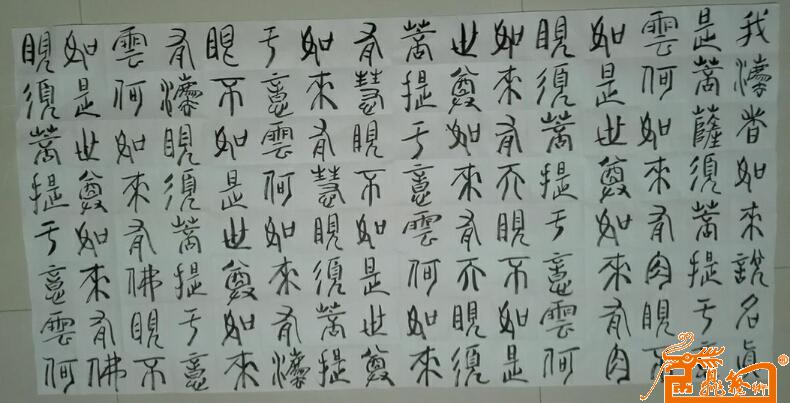 我灋者如來說名真
是菩薩須菩提于意
雲何如來有肉眼不
如是世尊如來有肉
眼須菩提于意雲何
如來有天眼不如是
世尊如來有天眼須
菩提于意雲何如來
有慧眼不如是世尊
如來有慧眼須菩提
于意雲何如來有灋
眼不如是世尊如來
有灋眼須菩提于意
雲何如來有佛眼不
如是世尊如來有佛
眼須菩提于意雲何